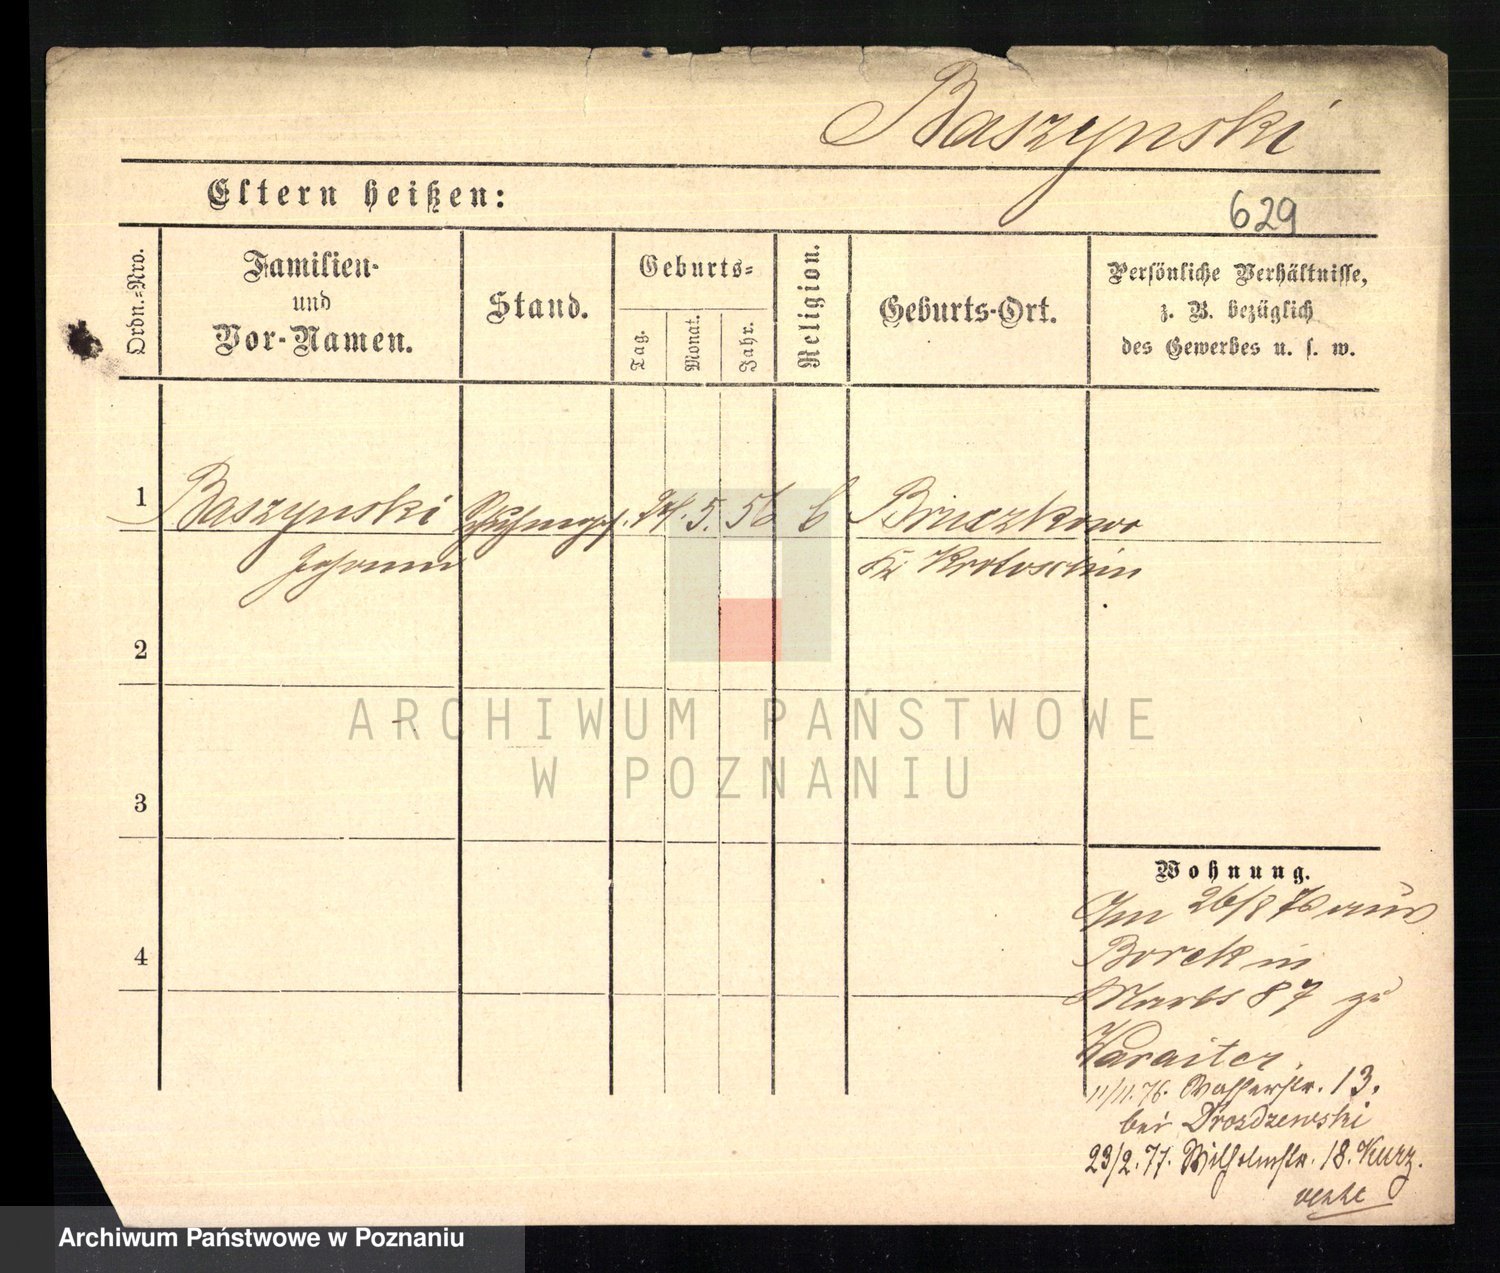 Baszynski
Eltern heißen:
629
Ordn.-Nro.
Familien-
und
Vor-Namen.
Stand.
Geburts-
Tag.
Monat.
Jahr.
Religion.
Geburts-Ort.
Persönliche Verhältnisse,
z. B. bezüglich
des Gewerbes u. s. w.
1
Baszynski
Johann
24. 5. 56
Bruczkowo
Kr Krotoschin
2
3
4
ARCHIWUM PAŃSTWOWE
W POZNANIU
Wohnung.
Am 26/8 76 aus
Borek in
Markt 87 zu
11/11. 76. Wasserstr. 13.
bei Drozdzewski
23/2. 77. Wilhelmstr. 18.
Archiwum Państwowe w Poznaniu